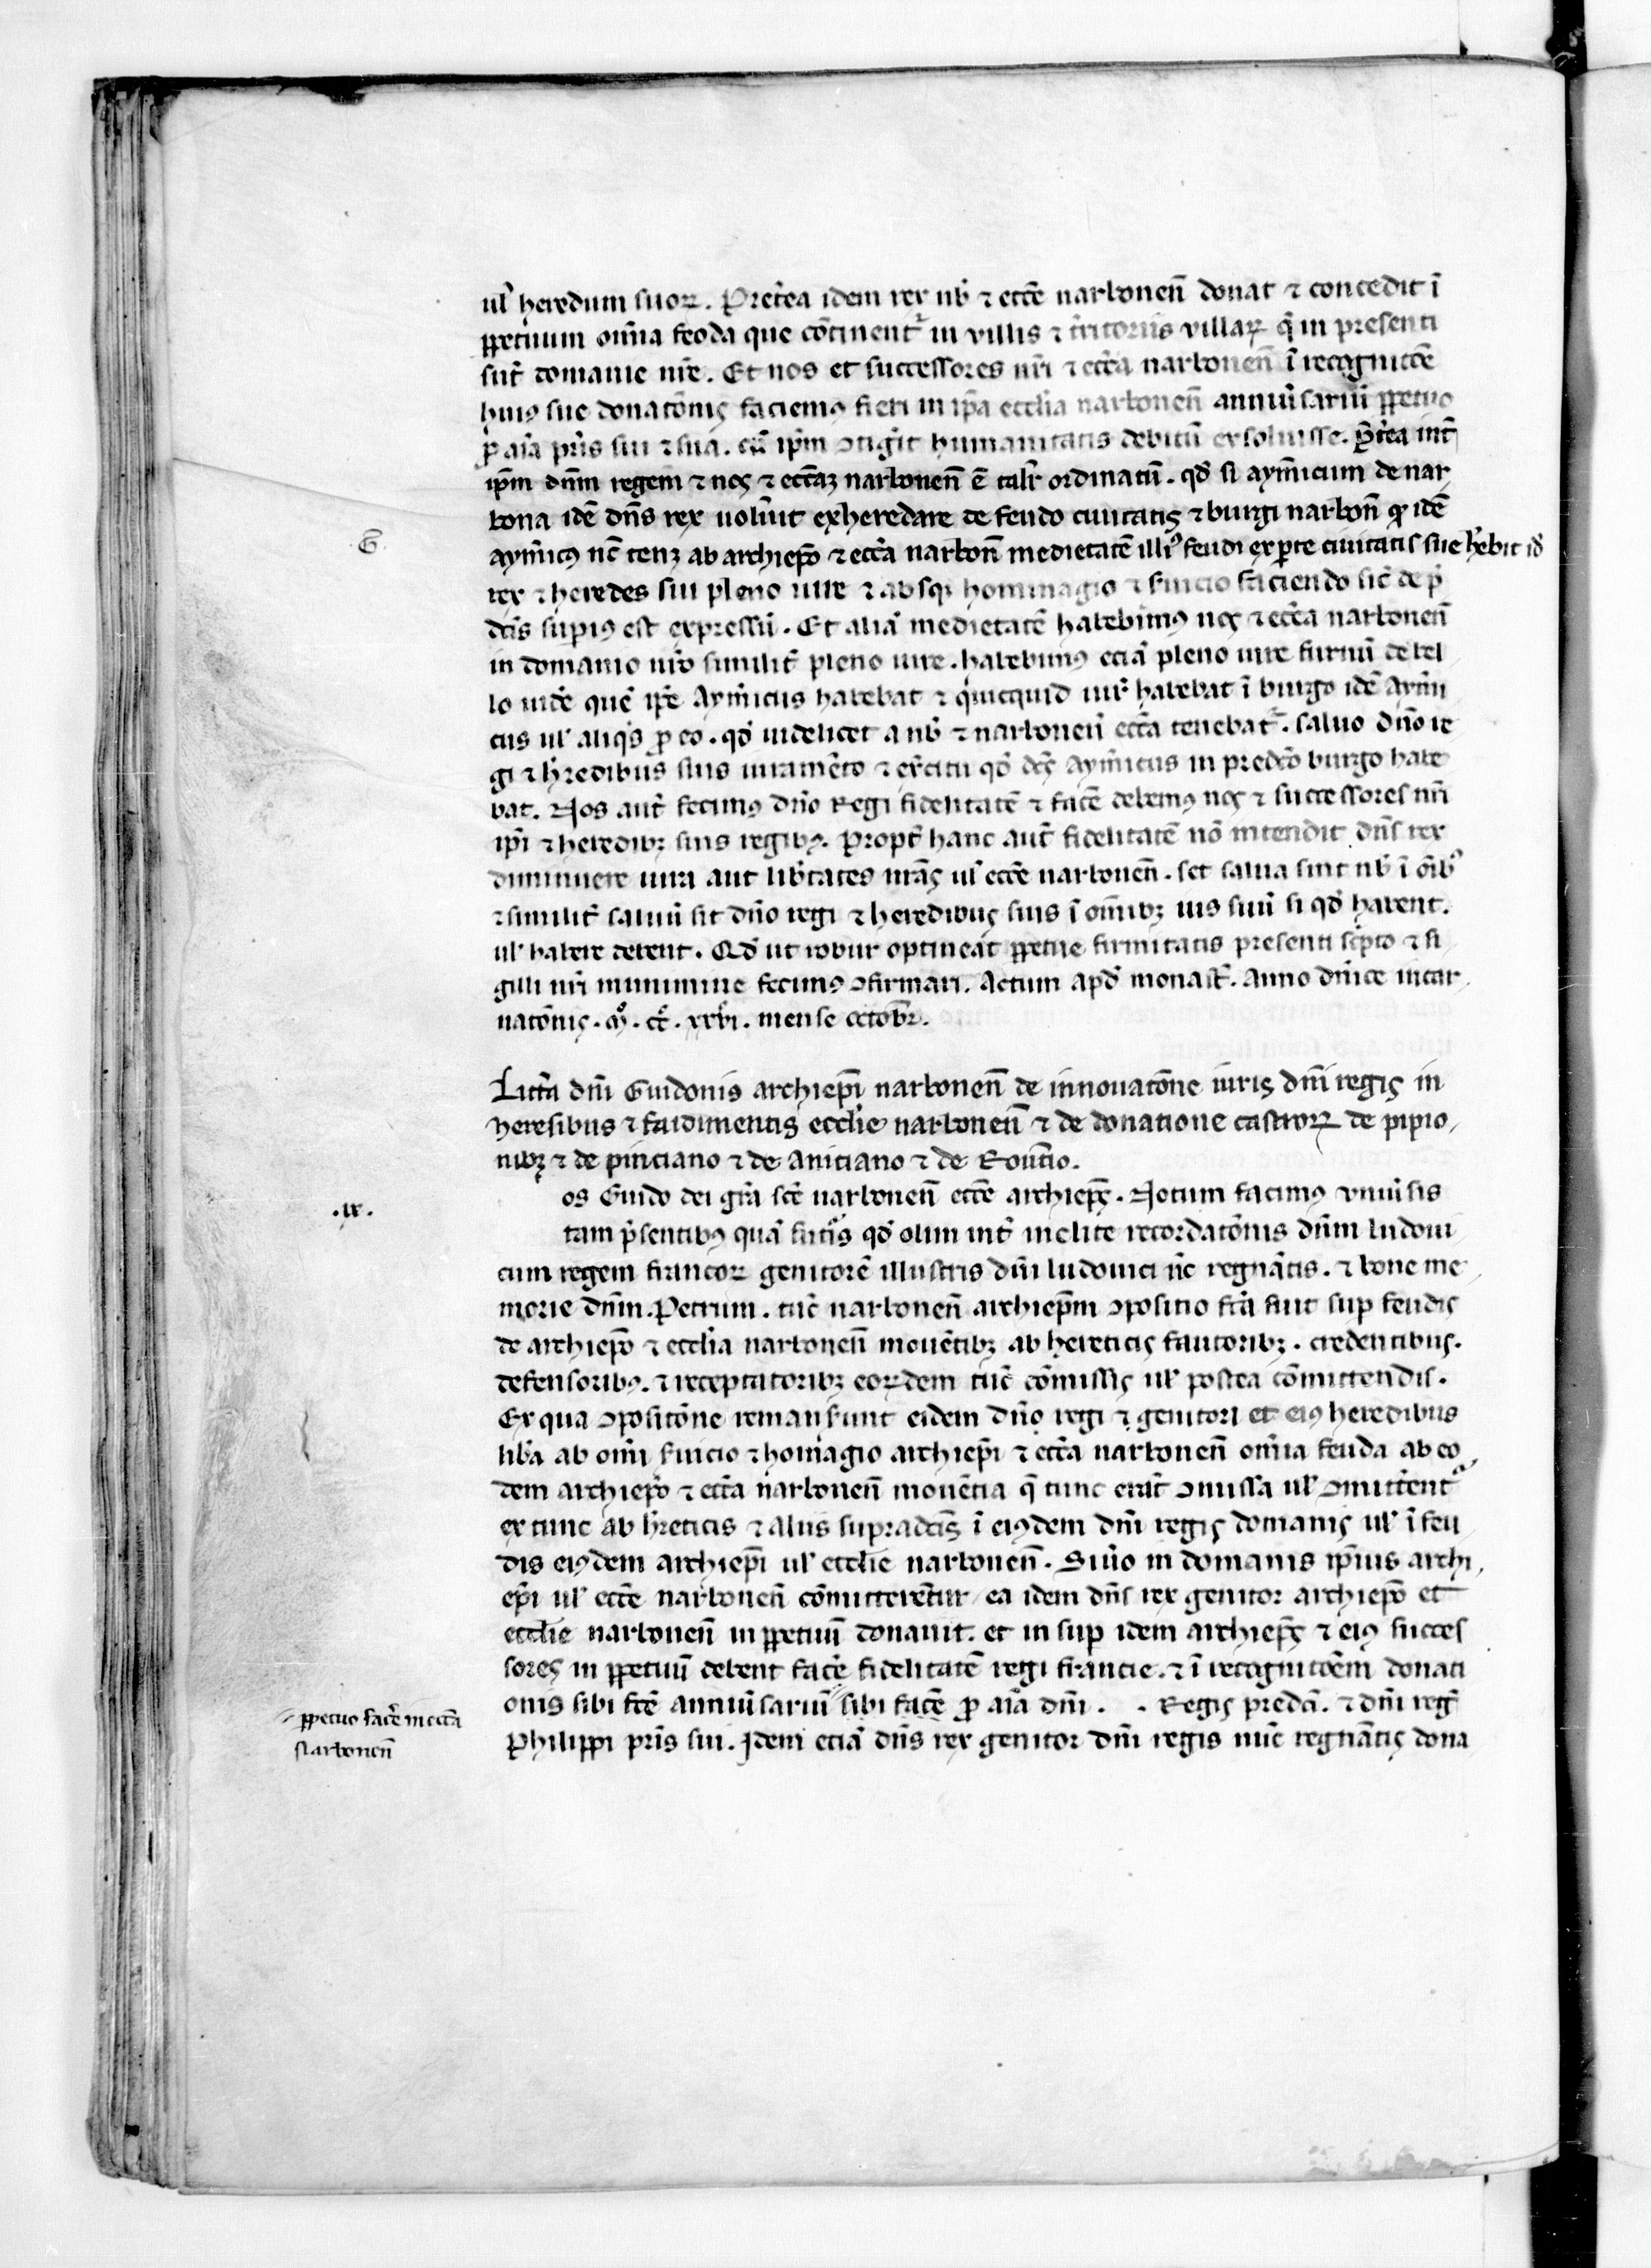 ul' heredum suoꝝ. Pret̾ea idem rex nb̾ ⁊ ecc̄e narbonen̄ donat ⁊ concedit ī
ꝑpetuum om̄ia feoda que cōtinent᷑ in villis ⁊ t̾ritoriis villaꝝ q̄ in presenti
sūt domanie nr̄e. Et nos et successores nr̄i ⁊ ecc̄a narbonen̄ ī recognitōe
huiꝰ sue donatōnis faciemꝰ fieri in ip̄a eccl̄ia narbonen̄ anniu̾sariū ꝑpetuo
ꝓ aīa pr̄is sui ⁊ sua. cū ip̄m ꝯtig̾it humanitatis debitū exsoluisse. P̄t̾ea int̾
ip̄m dn̄m regem ⁊ nos ⁊ ecc̄aꝫ narbonen̄ ē talr̄ ordinatū. qd̾ si aym̾icum de nar
bona idē dn̄s rex uolu̾it exheredare de feudo ciuitatis ⁊ burgi narbon̄ qd̾ idē
G.
aym̾icꝰ nc̄ tenꝫ ab archiep̄o ⁊ ecc̄a narbon̄ medietatē illiꝰ feudi ex ꝑte ciuitatis sue h̾ebit id̾
rex ⁊ heredes sui pleno iure ⁊ absqꝫ hommagio ⁊ s̾uicio faciendo sic̄ de p̄
dc̄is suꝑiꝰ est expressū. Et aliā medietatē habebimꝰ nos ⁊ ecc̄a narbonen̄
in domanio nr̄o similit̾ pleno iure. habebimꝰ eciā pleno iure furnū de bel
lo uidē quē ip̄e Aym̾icus habebat ⁊ quicquid iur̾ habebat ī burgo idē Aym̾i
cus ul' aliqͥs ꝓ eo. qd̾ uidelicet a nb̾ ⁊ narbonen̄ ecc̄a tenebat᷑. saluo dn̄o re
gi ⁊ h̾redibus suis iuramēto ⁊ ex̾citu qd̾ dc̄s Aym̾icus in predc̄o burgo habe
bat. Nos aut̄ fecimꝰ dn̄o Regi fidelitatē ⁊ fac̾e debemꝰ nos ⁊ successores nr̄i
ip̄i ⁊ heredibꝫ suis regibꝰ. Propt̾ hanc aut̄ fidelitatē nō intendit dn̄s rex
diminuere iura aut lib̾tates nr̄as ul' ecc̄e narbonen̄. set salua sint nb̾ ī oīb᷒
⁊ similit̾ saluū sit dn̄o regi ⁊ heredibus suis ī om̄ibꝫ ius suū si qd̾ habent.
ul' habere debent. Qd̾ ut robur optineat ꝑpetue firmitatis presenti sc̾pto ⁊ si
gilli nr̄i munimine fecimꝰ ꝯfirmari. Actum apd̾ monast̾. Anno dn̄ice incar
natōnis. Mͦ. CCͦ. xxvi. mense octobr̄.
Litt̾a dn̄i Guidonis archiep̄i narbonen̄ de innouatōne iuris dn̄i regis in
heresibus ⁊ faidimentis eccl̄ie narbonen̄ ⁊ de donatione castroꝝ de pipio
nibꝫ ⁊ de pinciano ⁊ de Aniciano ⁊ de
.ix.
os Guido dei gr̄a sc̄e narbonen̄ ecc̄e archiep̄s. Notum facimꝰ vniu̾sis
tam p̄sentibꝰ quā futͥs qd̾ olim int̾ inclite recordatōnis dn̄m ludoui
cum regem francoꝝ genitorē illustris dn̄i ludouici nc̄ regnātis. ⁊ bone me
morie dn̄m. Petrum. tūc narbonen̄ archiep̄m ꝯpositio fc̄a fuit suꝑ feudis
de archiep̄o ⁊ eccl̄ia narbonen̄ mouētibꝫ ab hereticis fautoribꝫ. credentibus.
defensoribꝰ. ⁊ receptatoribꝫ eoꝝdem tūc cōmissis ul' postea cōmittendis.
Ex qua ꝯpositōne remans̾unt eidem dn̄o regi ⁊ genitori et eiꝰ heredibus
lib̾a ab om̄i s̾uicio ⁊ homagio archiep̄i ⁊ ecc̄a narbonen̄ om̄ia feuda ab eo
dem archiep̄o ⁊ ecc̄a narbonen̄ mouētia q̄ tunc erāt ꝯmissa ul' ꝯmitt̾ent᷑
ex tunc ab h̾reticis ⁊ aliis supradc̄is ī eiꝰdem dn̄i regis domanis ul' ī feu
dis eiꝰdem archiep̄i ul' eccl̄ie narbonen̄. Si u̾o in domanis ip̄ius archi
ep̄i ul' ecc̄e narbonen̄ cōmitterētur ea idem dn̄s rex genitor archiep̄o et
eccl̄ie narbonen̄ in ꝑpetuū donauit. et in suꝑ idem archiep̄s ⁊ eiꝰ succes
sores in ꝑpetuū debent fac̾e fidelitatē regi francie. ⁊ ī recognitōem donati
onis sibi fc̄e anniu̾sariū sibi fac̾e ꝓ aīa dn̄i . . Regis predc̄i. ⁊ dn̄i reg̾
ꝑpetuo fac̾e in ecc̄a
Narbonen̄
Philippi pr̄is sui. Idem eciā dn̄s rex genitor dn̄i regis nūc regnātis dona